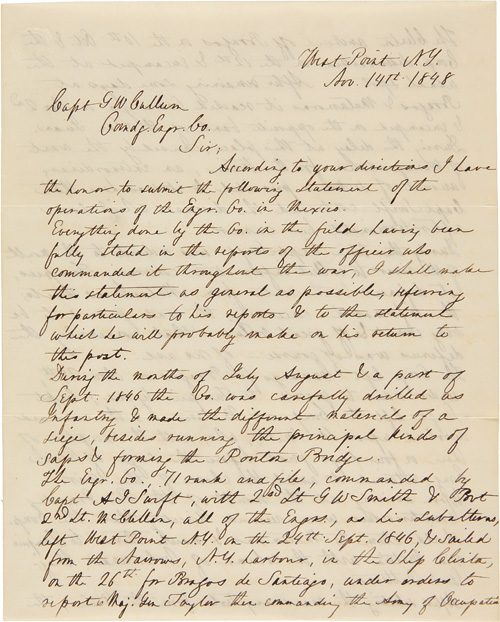 West Point N.Y.
Nov. 14th 1848
Capt G W Cullum
Comdg. Engr. Co.
Sir,
According to your directions I have
the honor to submit the following statement of the
operations of the Engr. Co. in Mexico.
Everything done by the Co. in the field having been
fully stated in the reports of the officer who
commanded it throughout the war, I shall make
this statement as general as possible, referring
for particulars to his reports & to the statement
which he will probably make on his return to
this post.
During the months of July August & a part of
Sept. 1846 the Co. was carefully drilled as
Infantry & made the different materials of a
siege, besides running the principal kinds of
saps & forming the Ponton Bridge.
The Engr. Co., 71 rank and file, commanded by
Capt A J Swift, with 2nd Lt G W Smith & Bvt
2nd Lt. McClellan, all of the Engrs, as his subalterns,
left West Point N.Y. on the 24th Sept. 1846, & sailed
from the Narrows, N.Y. harbour, in the Ship Clista,
on the 26th for Brazos de Santiago, under orders to
report to Maj. Gen Taylor then commanding the Army of Occupation